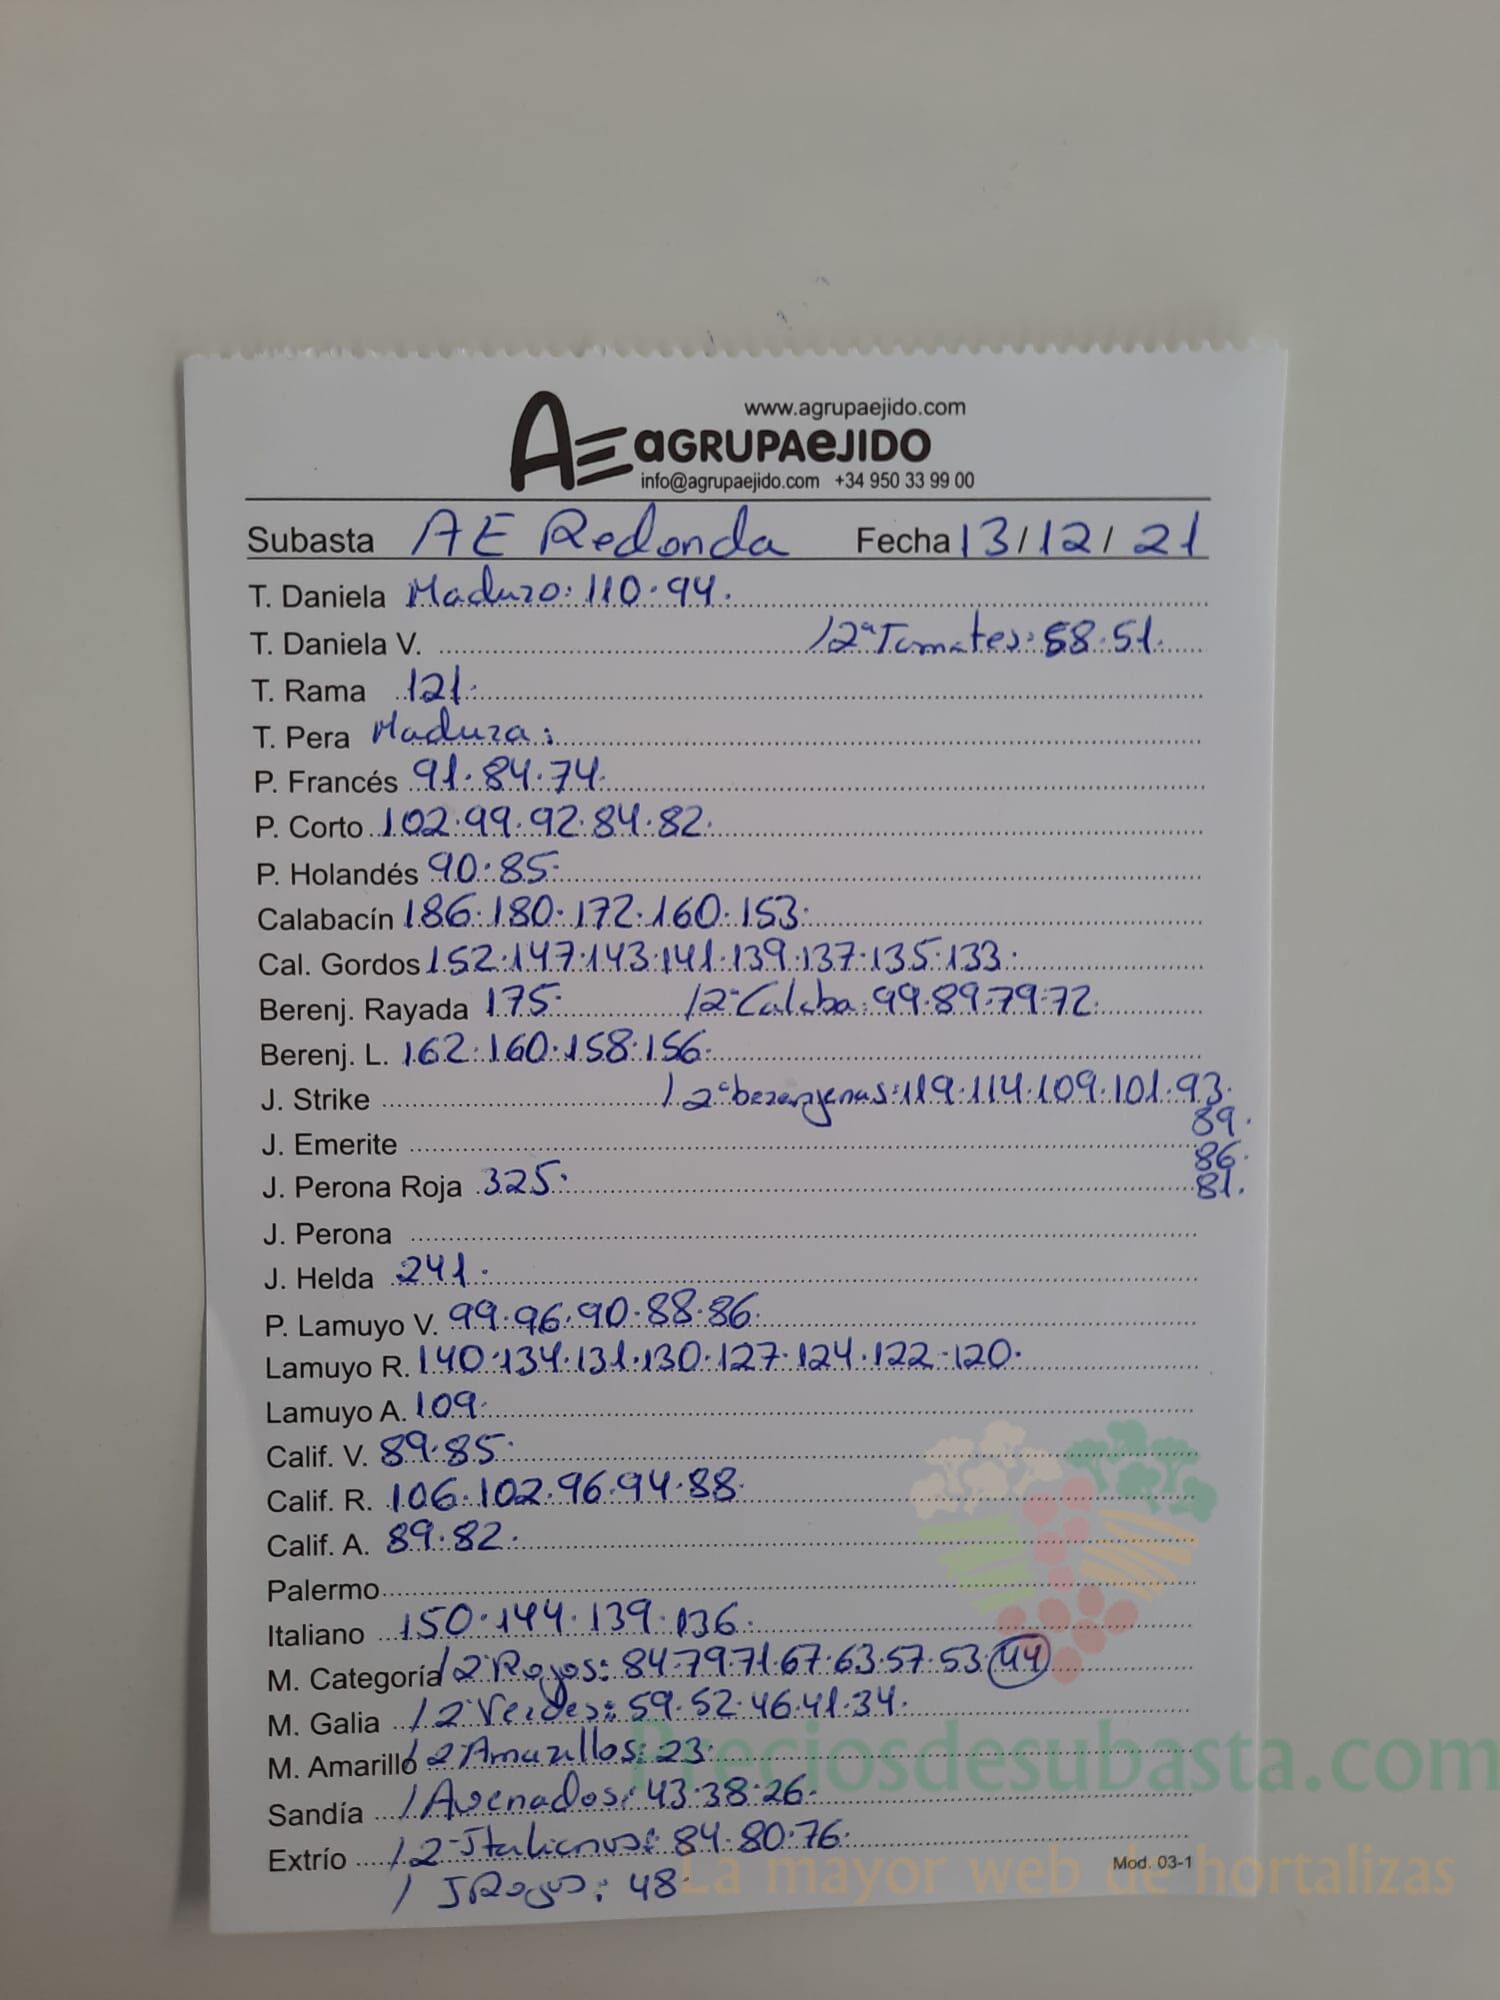 www.agrupaejido.com
AE aGRUPAeJIDO
info@agrupaejido.com +34 950 33 99 00
Subasta AE Redonda Fecha 13/12/21
T. Daniela Maduro: 110.94.
T. Daniela V. /2ªTomates: 58.51.
T. Rama 121.
T. Pera Madura:
P. Francés 91.84.74.
P. Corto 102.99.92.84.82.
P. Holandés 90.85.
Calabacín 186.180.172.160.153.
Cal. Gordos 152.147.143.141.139.137.135.133.
Berenj. Rayada 175. /2ªCalaba: 99.89.79.72.
Berenj. L. 162.160.158.156.
J. Strike /2ªberenjenas: 119.114.109.101.93.
89.
J. Emerite
86.
J. Perona Roja 325.
81.
J. Perona
J. Helda 241.
P. Lamuyo V. 99.96.90.88.86.
Lamuyo R. 140.134.131.130.127.124.122.120.
Lamuyo A. 109.
Calif. V. 89.85.
Calif. R. 106.102.96.94.88.
Calif. A. 89.82.
Palermo
Italiano 150.144.139.136.
M. Categoría /2ªRojos: 84.79.71.67.63.57.53.44
M. Galia /2ªVerdes: 59.52.46.41.34.
M. Amarillo /2ªAmarillos: 23.
Sandía /Asenados: 43.38.26.
Extrío /2ªItalianos: 84.80.76.
Mod. 03-1
/ IRojos: 48.
Preciosdesubasta.com
La mayor web de hortalizas